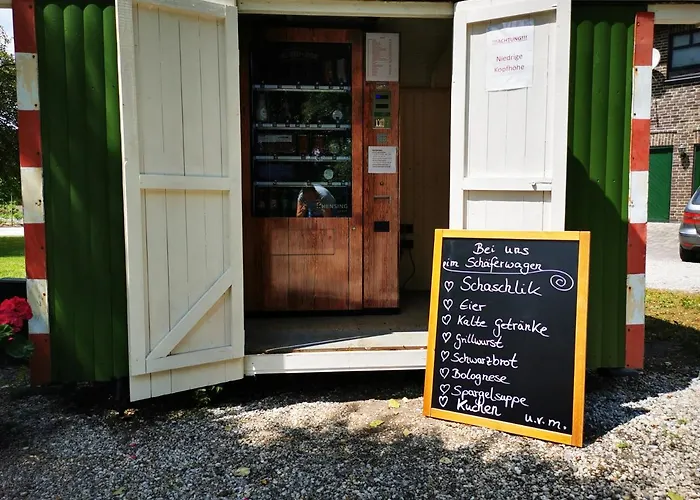 !!!ACHTUNG!!!
Niedrige
Kopfhöhe
HENSING
Bei uns
im Schäferwagen
Schaschlik
Eier
Kalte Getränke
Grillwurst
Schwarzbrot
Bolognese
Spargelsuppe
Kuchen
u.v.m.